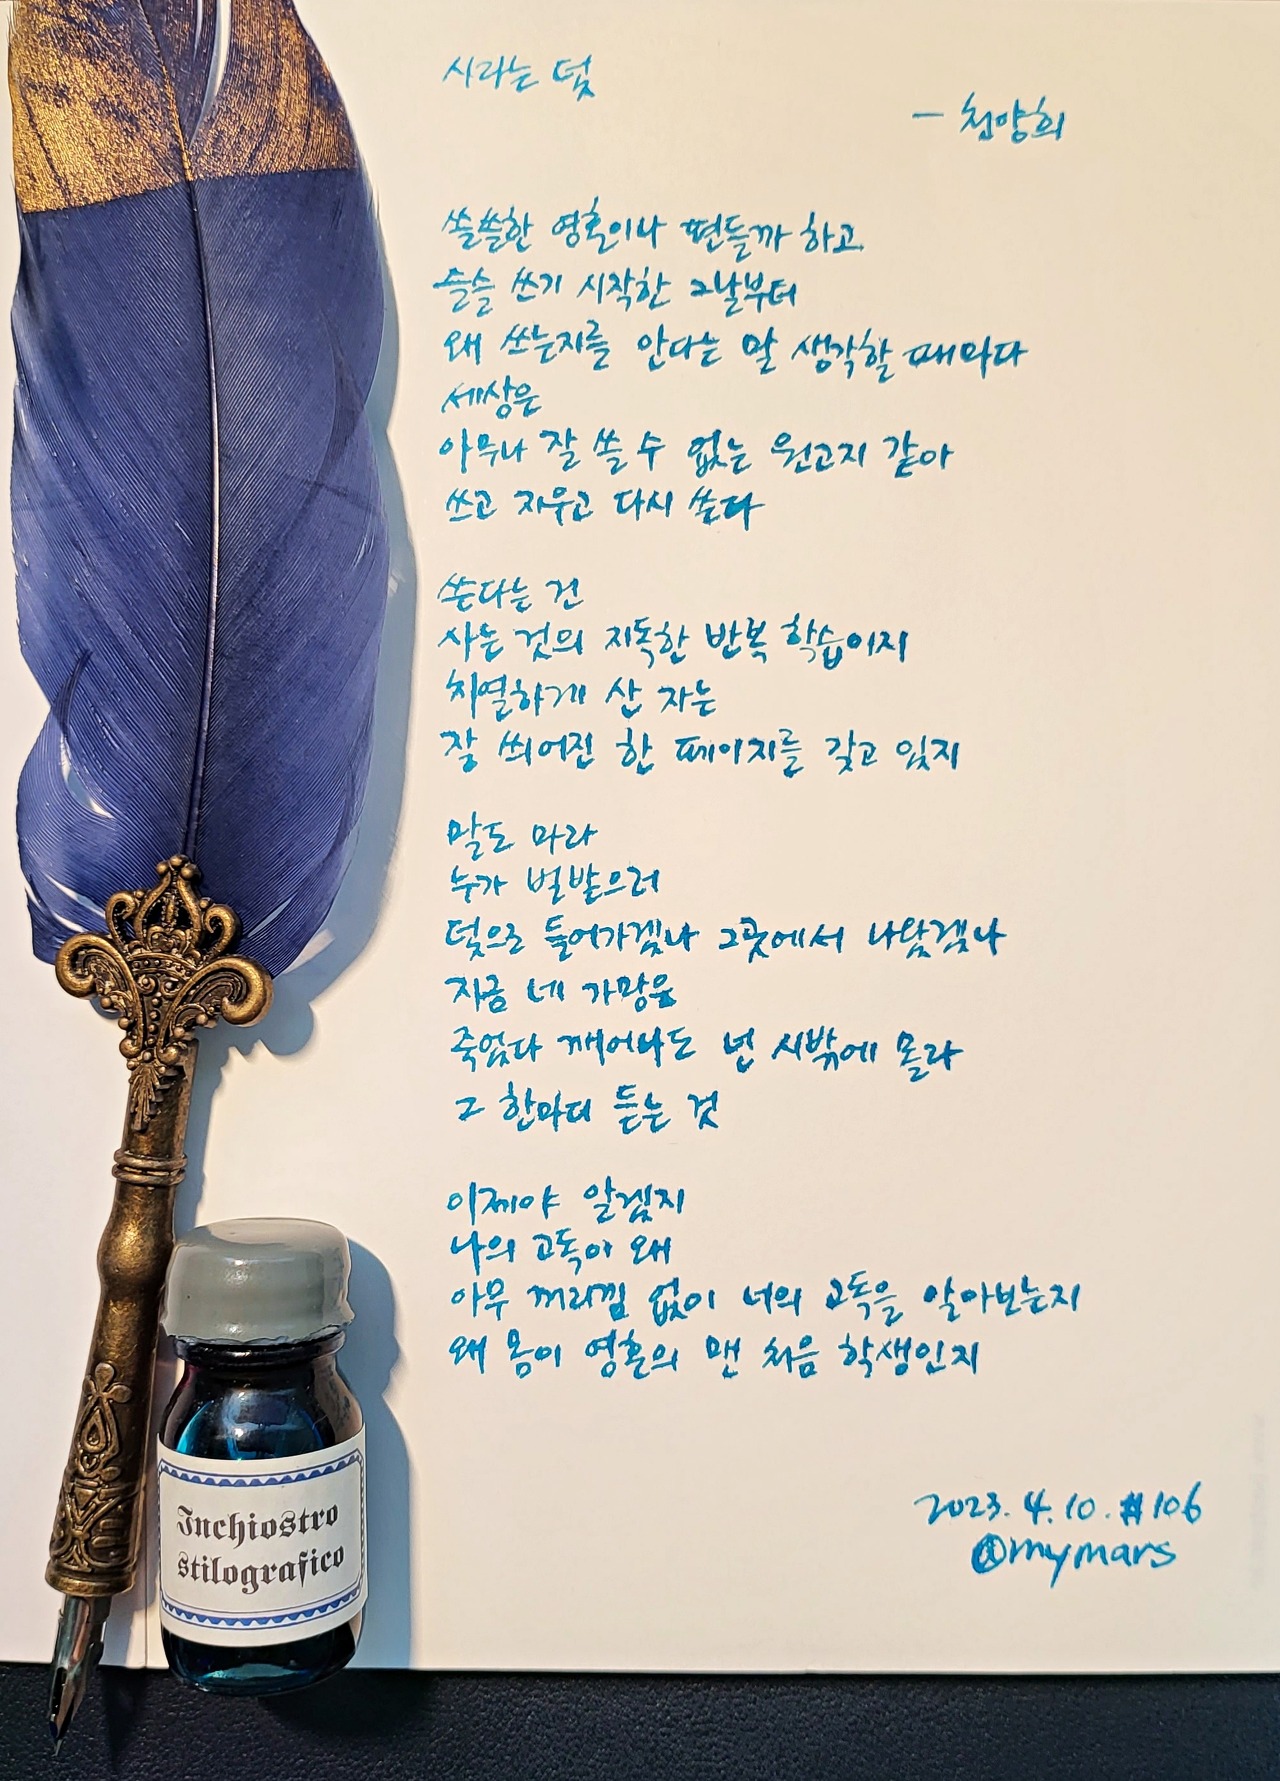 시라는 덫
- 천양희
쓸쓸한 영혼이나 편들까 하고
슬슬 쓰기 시작한 그날부터
왜 쓰는지를 안다는 말 생각할 때마다
세상은
아무나 잘 쓸 수 없는 원고지 같아
쓰고 지우고 다시 쓴다
쓴다는 건
사는 것의 지독한 반복 학습이지
치열하게 산 자는
잘 씌어진 한 페이지를 갖고 있지
말도 마라
누가 벌받으러
덫으로 들어가겠나 그곳에서 나왔겠나
지금 네 가망은
죽었다 깨어나도 넌 시밖에 몰라
그 한마디 듣는 것
이제야 알겠지
나의 고독이 왜
아무 꺼리낌 없이 너의 고독을 알아보는지
왜 몸이 영혼의 맨 처음 학생인지
2023. 4. 10. #106
@mymars
Inchiostro
stilografico